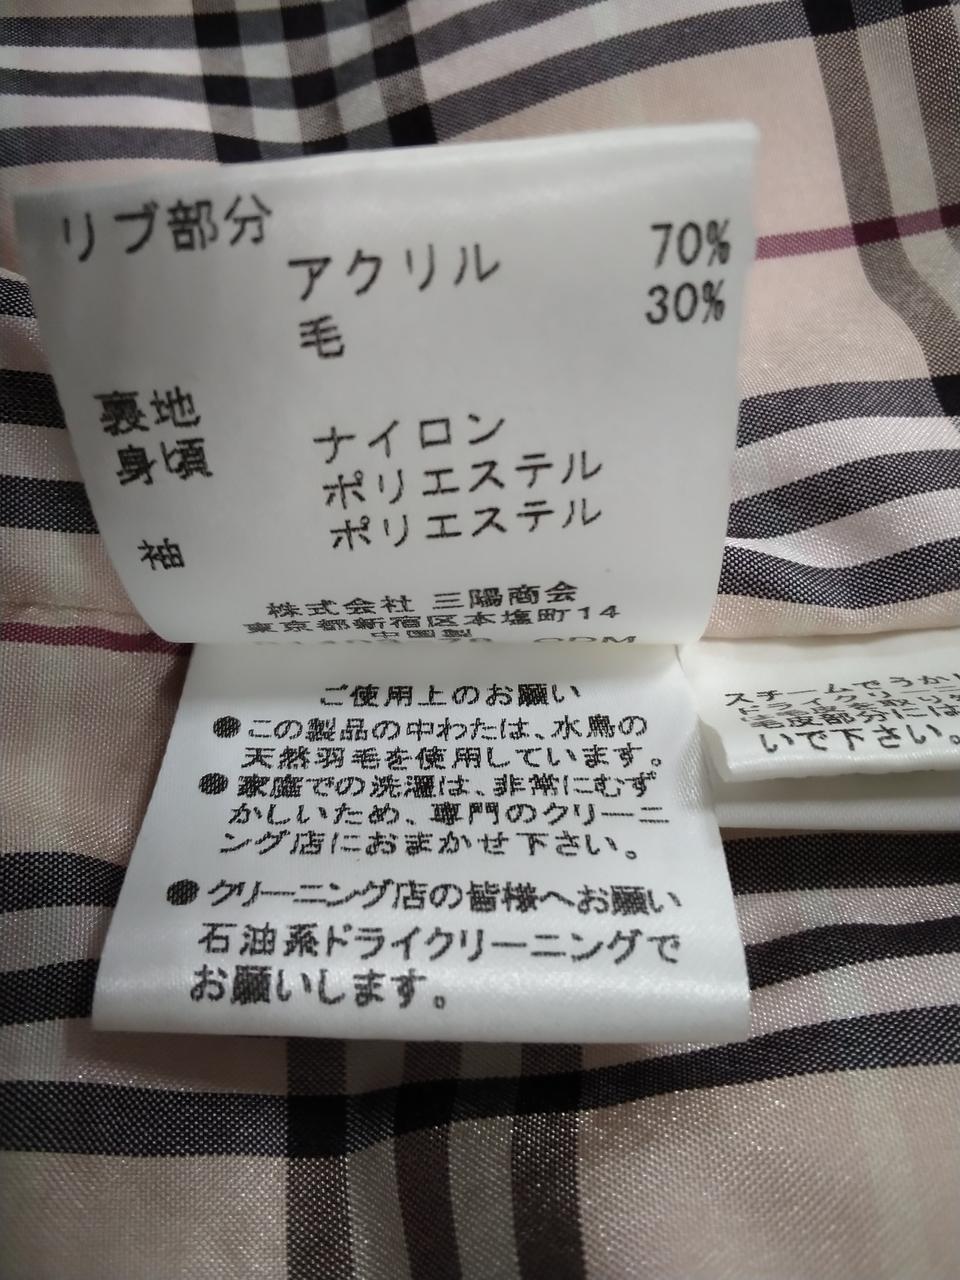 リブ部分
アクリル 70%
毛 30%
裏地
身頃 ナイロン
ポリエステル
袖 ポリエステル
株式会社 三陽商会
東京都新宿区本塩町14
中国製
ご使用上のお願い
●この製品の中わたは、水鳥の
天然羽毛を使用しています。
●家庭での洗濯は、非常にむず
かしいため、専門のクリーニ
ング店におまかせ下さい。
●クリーニング店の皆様へお願い
石油系ドライクリーニングで
お願いします。
スチームでうか
いで下さい。